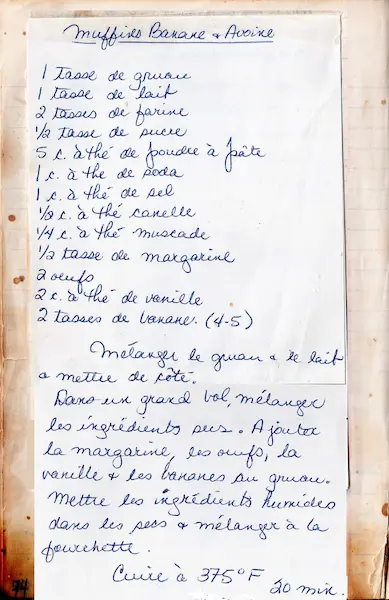 Muffins Banane & Avoine
1 tasse de gruau
1 tasse de lait
2 tasses de farine
1/2 tasse de sucre
5 c. à thé de poudre à pâte
1 c. à thé de soda
1 c. à thé de sel
1/2 c. à thé canelle
1/4 c. à thé muscade
1/2 tasse de margarine
2 oeufs
2 c. à thé de vanille
2 tasses de banane. (4-5)
Mélanger le gruau & le lait
& mettre de côté.
Dans un grand bol, mélanger
les ingrédients secs. Ajouter
la margarine, les oeufs, la
vanille & les bananes au gruau.
Mettre les ingrédients humides
dans les secs & mélanger à la
fourchette.
Cuire à 375°F
20 min.
74